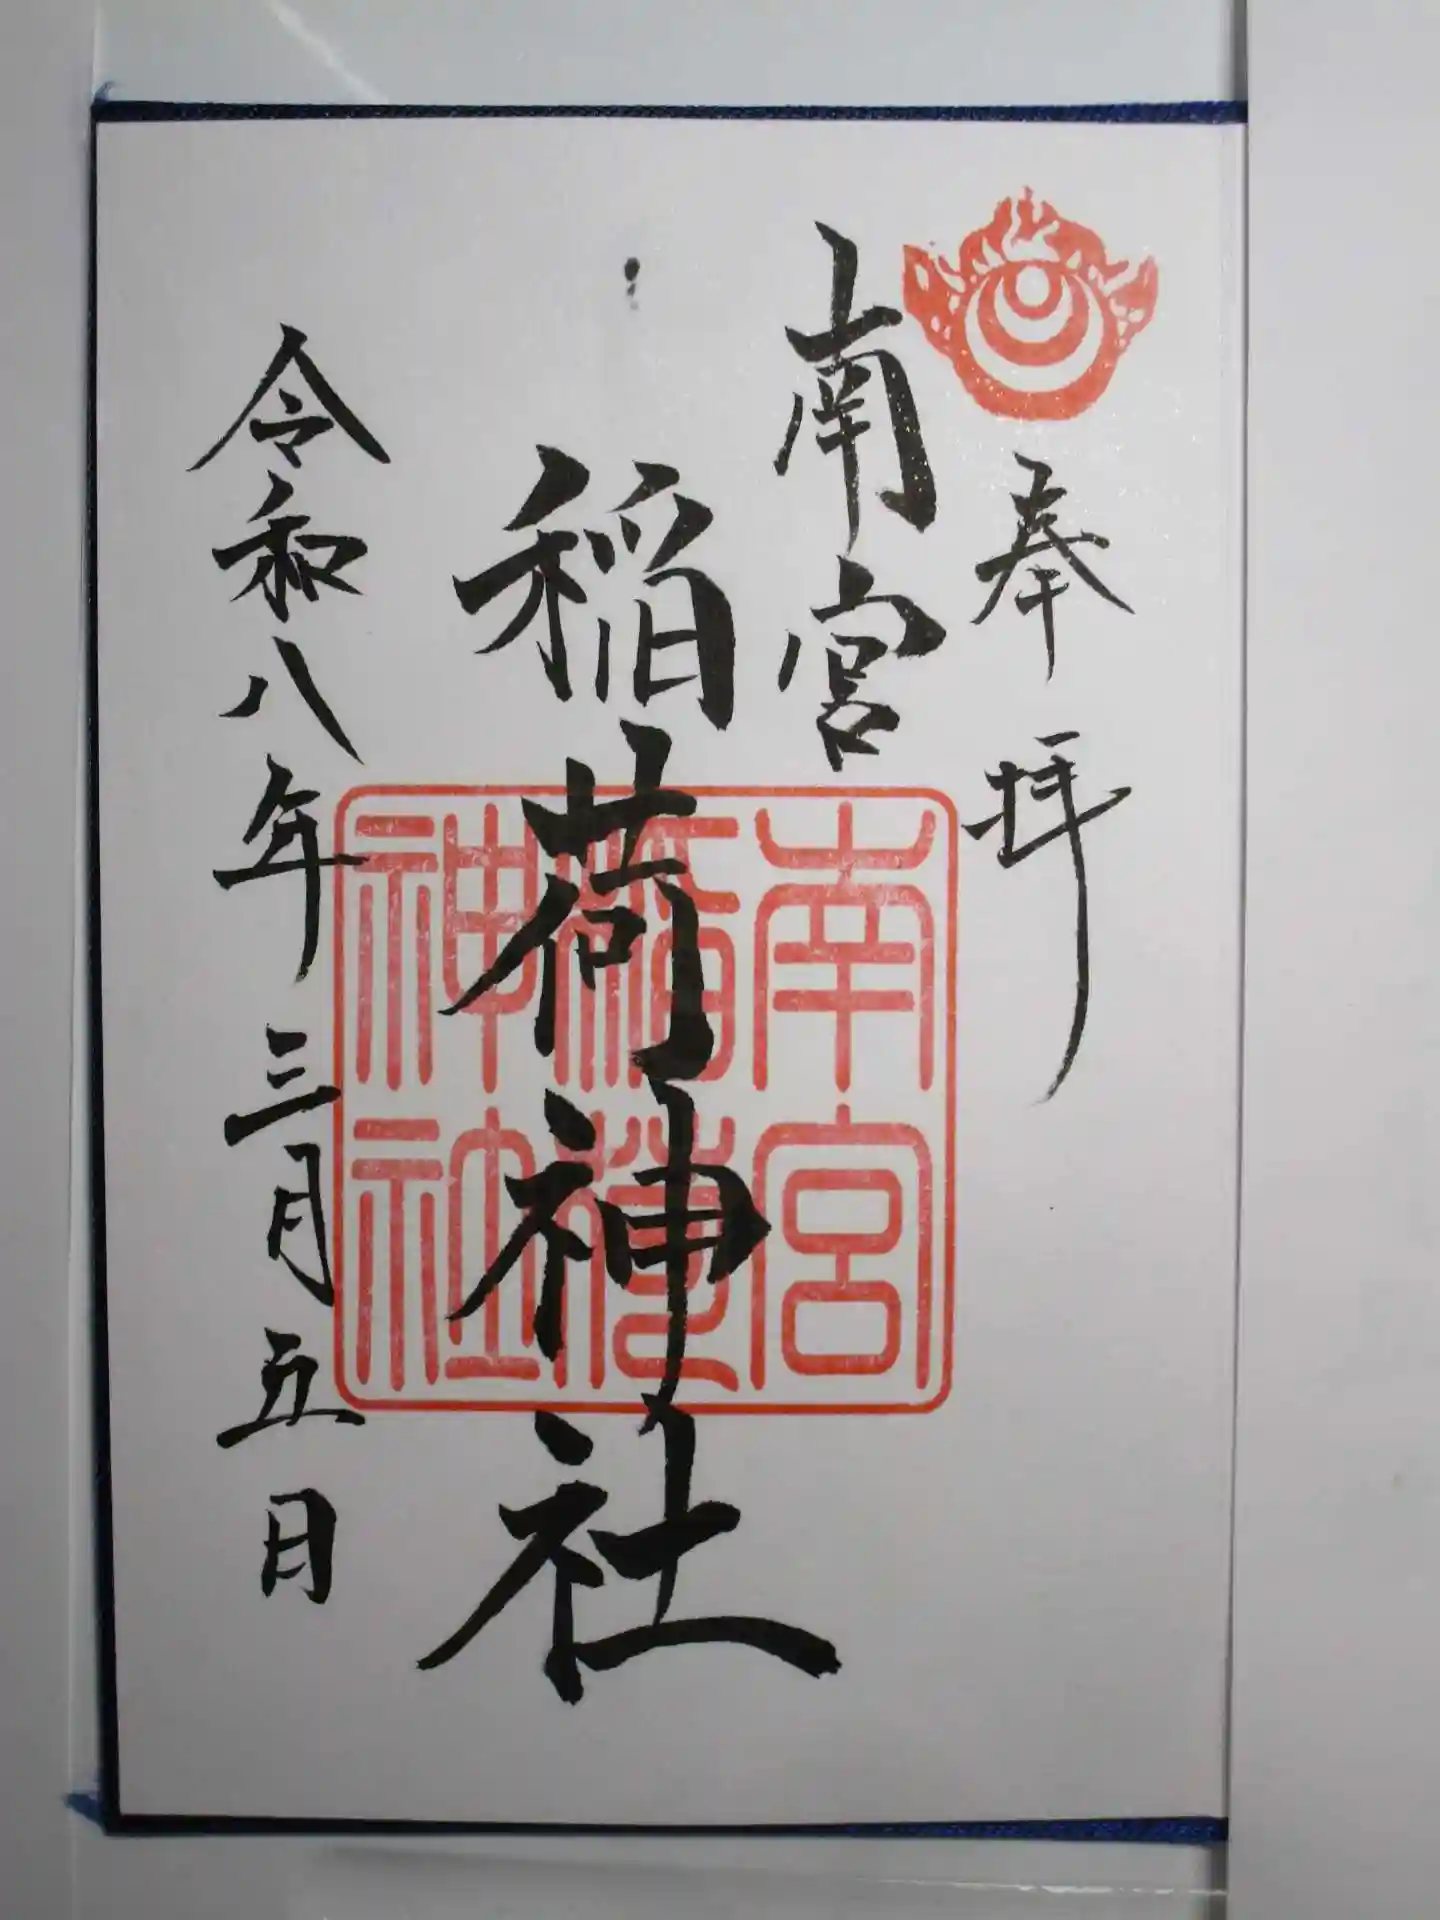 奉拝
南宮
稲荷神社
令和八年三月五日
南宮
稲荷
神社